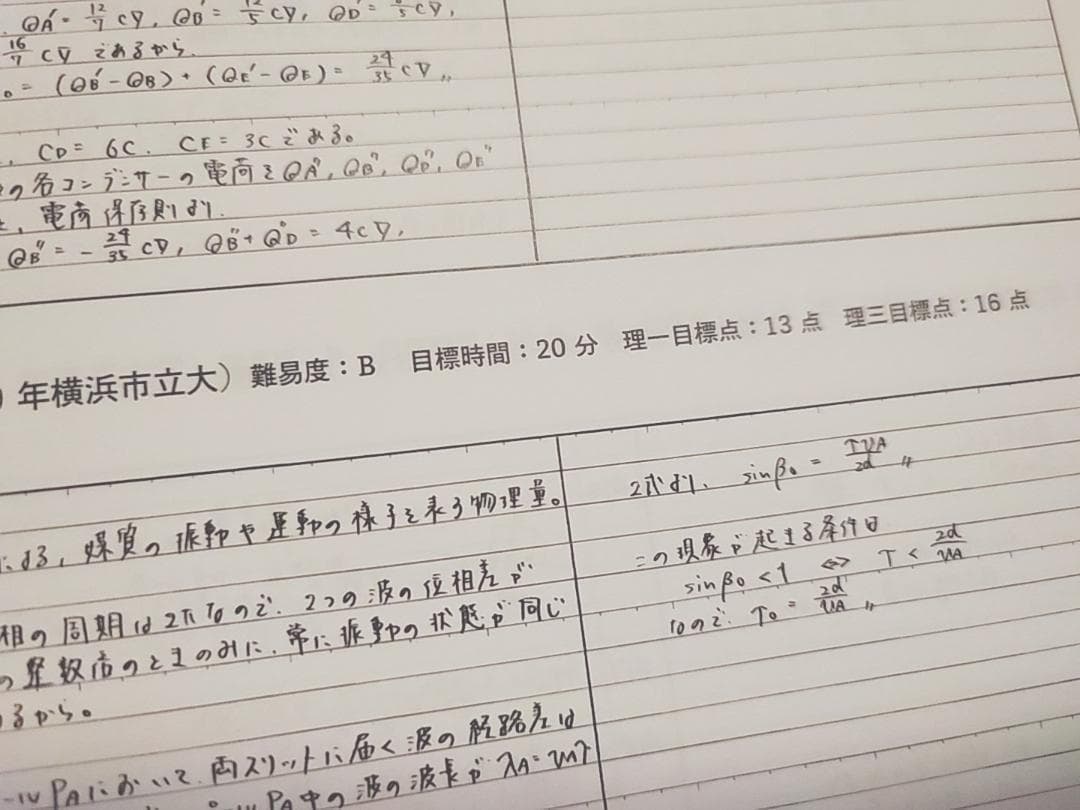 QA' = 12/7 CV, QB' = 12/5 CV, QD' = 8/5 CV,
16/7 CV であるから.
= (QB' - QB) + (QE' - QE) = 24/35 CV〃
CD = 6C. CE = 3C である。
の各コンデンサーの電荷を QA'', QB'', QD'', QE''
と, 電荷保存則より.
QB'' = - 24/35 CV, QB'' + QD'' = 4CV,
年横浜市立大）難易度：B 目標時間：20 分 理一目標点：13 点 理三目標点：16 点
よる, 媒質の振動や運動の様子を表す物理量。
相の周期は2πなので. 2つの波の位相差が
の整数倍のときのみに, 常に振動の状態が同じ
るから。
PAにおいて. 両スリットに届く波の経路差は
PA中の波の波長が λA = VAT
2式より、 sinβ0 = TVA/2d 〃
この現象が起きる条件は
sinβ0 < 1 ⇔ T < 2d/VA
なので. T0 = 2d/VA 〃